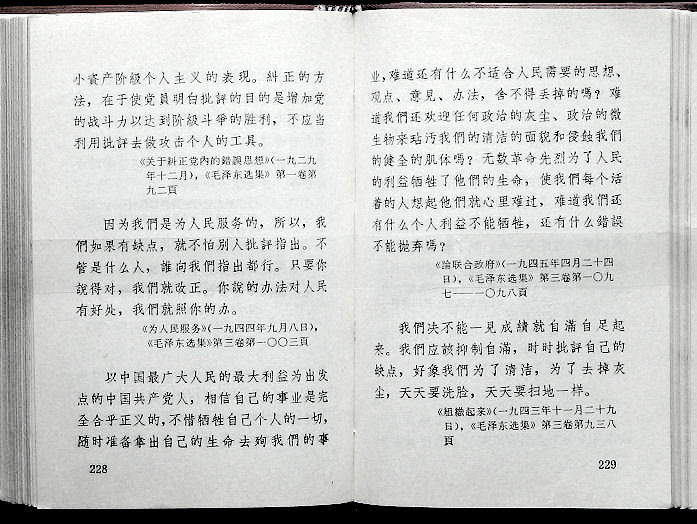 小資产阶級个人主义的表現。糾正的方
法，在于使党員明白批評的目的是增加党
的战斗力以达到阶級斗爭的胜利，不应当
利用批評去做攻击个人的工具。
《关于糾正党內的錯誤思想》(一九二九
年十二月)，《毛泽东选集》第一卷第
九二頁
因为我們是为人民服务的，所以，我
們如果有缺点，就不怕別人批評指出。不
管是什么人，誰向我們指出都行。只要你
說得对，我們就改正。你說的办法对人民
有好处，我們就照你的办。
《为人民服务》(一九四四年九月八日)，
《毛泽东选集》第三卷第一〇〇三頁
以中国最广大人民的最大利益为出发
点的中国共产党人，相信自己的事业是完
全合乎正义的，不惜牺牲自己个人的一切，
随时准备拿出自己的生命去殉我們的事
228
业，难道还有什么不适合人民需要的思想、
观点、意見、办法，舍不得丢掉的嗎？难
道我們还欢迎任何政治的灰尘、政治的微
生物来玷汚我們的清洁的面貌和侵蝕我們
的健全的肌体嗎？无数革命先烈为了人民
的利益牺牲了他們的生命，使我們每个活
着的人想起他們就心里难过，难道我們还
有什么个人利益不能牺牲，还有什么錯誤
不能抛弃嗎？
《論联合政府》(一九四五年四月二十四
日)，《毛泽东选集》第三卷第一〇九
七——一〇九八頁
我們决不能一見成績就自滿自足起
来。我們应該抑制自滿，时时批評自己的
缺点，好象我們为了清洁，为了去掉灰
尘，天天要洗脸，天天要扫地一样。
《組織起来》(一九四三年十一月二十九
日)，《毛泽东选集》第三卷第九三八
頁
229